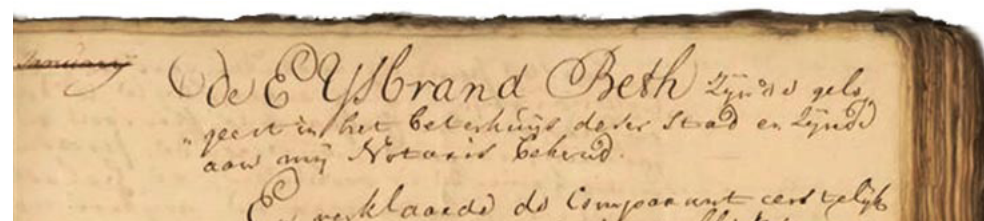 January
de E YsBrand Beth Zijnde gelo,
"geert in het beterhuijs deser Stad en Zijnde
aan mij Notaris bekend.
En verklaarde de Comparant eerstelijk